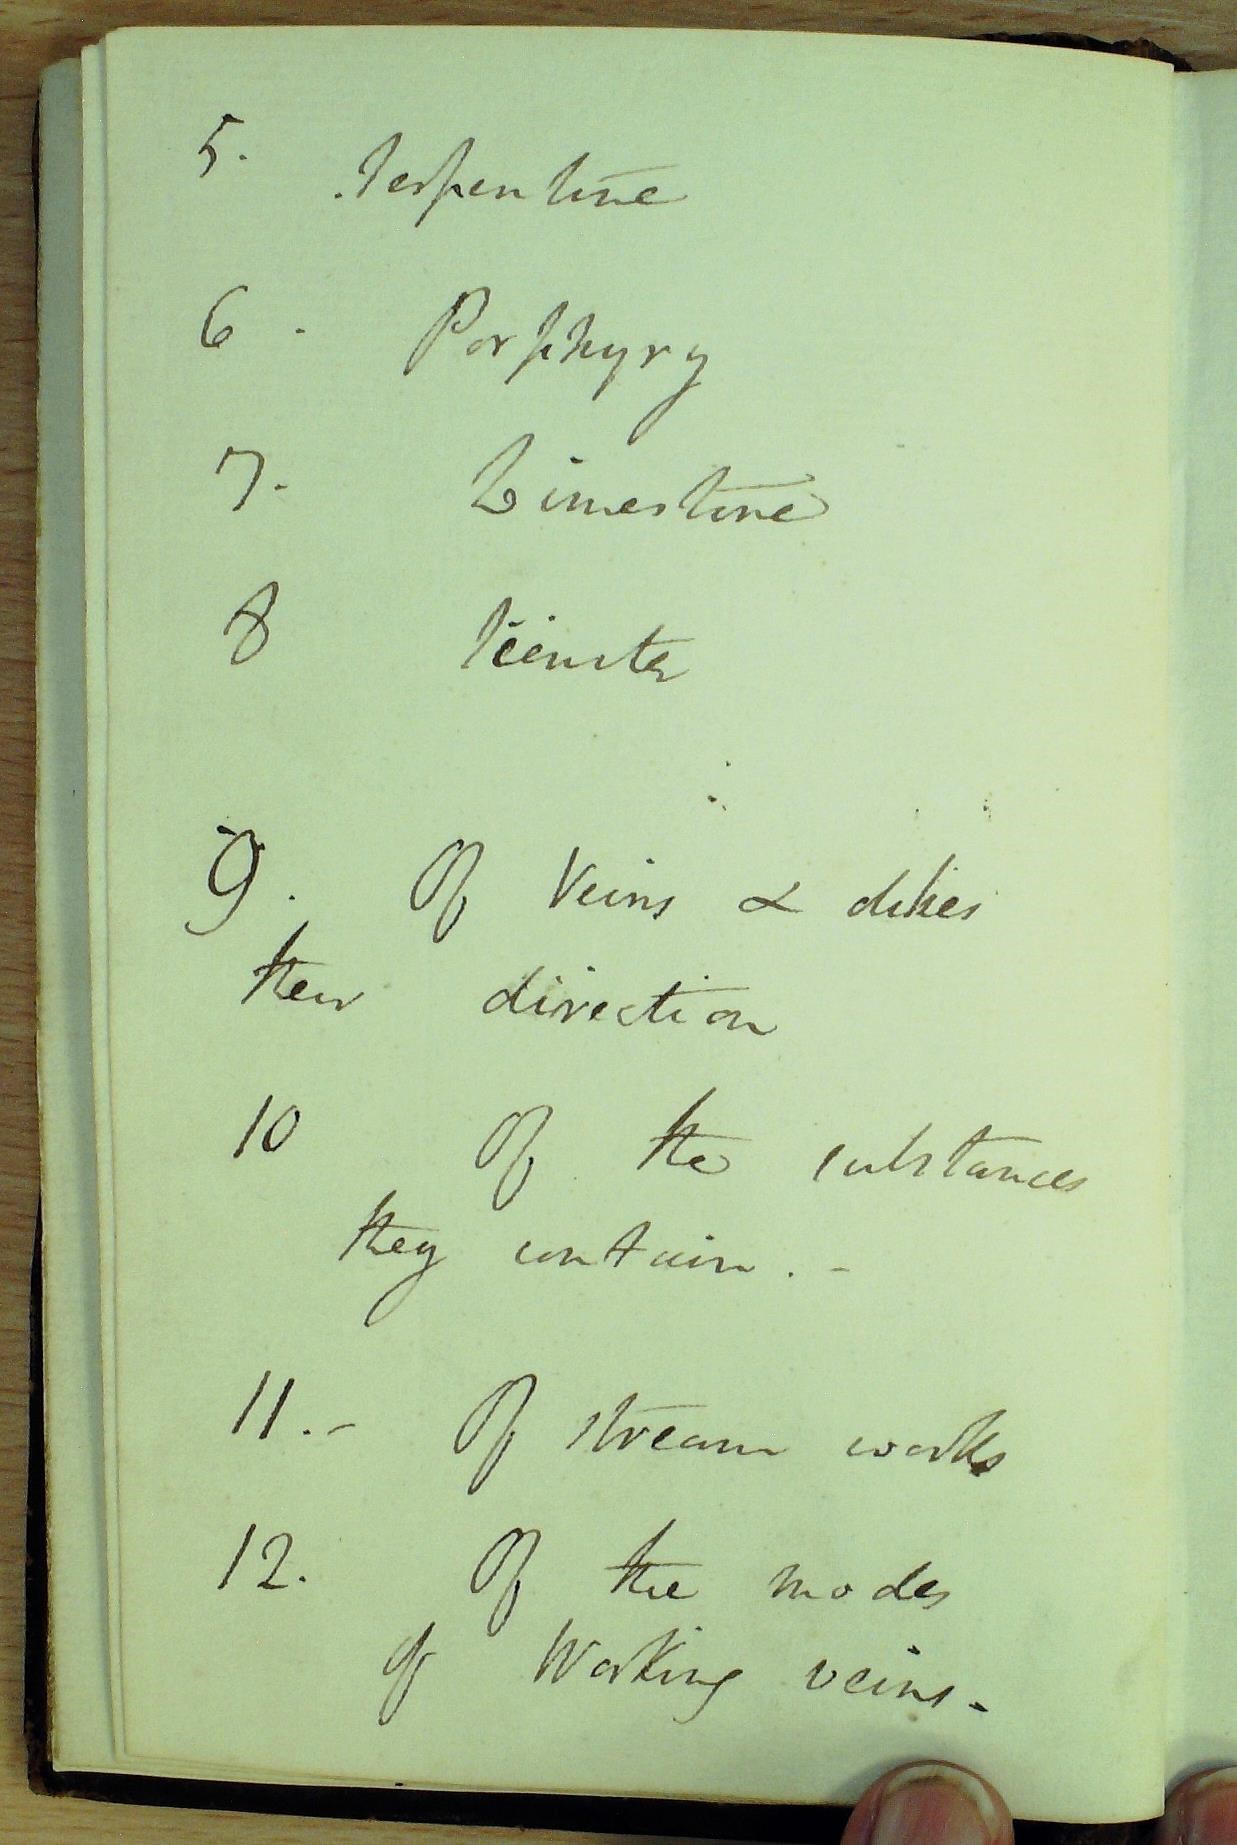 5. Serpentine
6. Porphyry
7. Limestone
8 Sienite
9. Of Veins & dikes
their direction
10 Of the substances
they contain. -
11. - Of stream works
12. Of the modes
of Working veins -